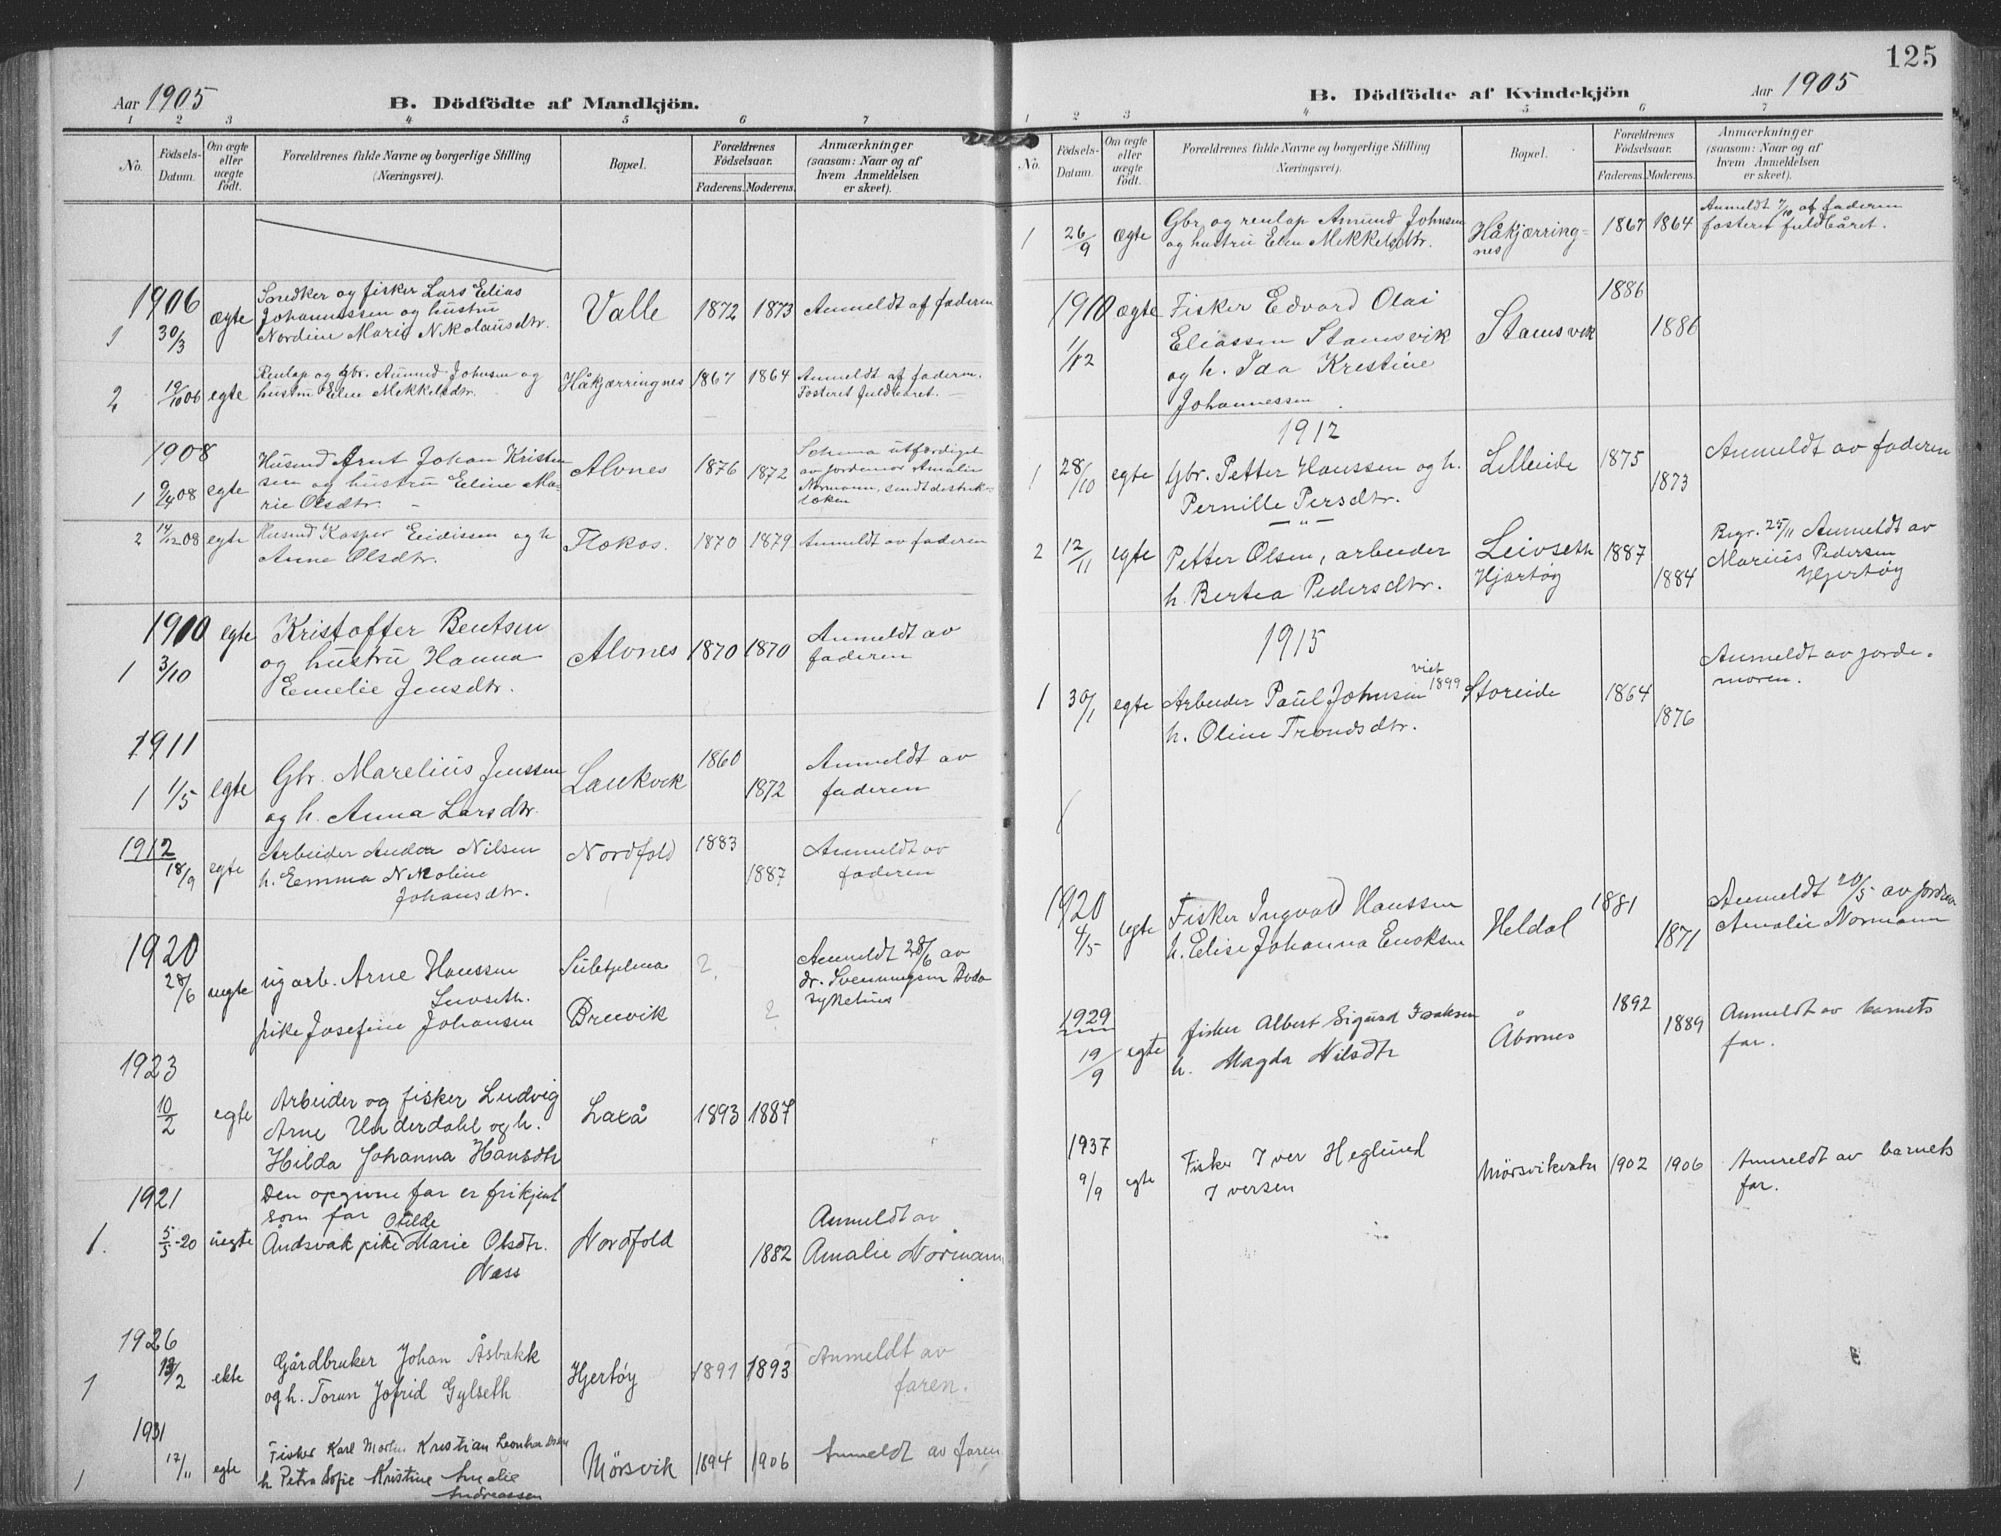 Aar 1905
B. Dödfödte af Mandkjön.
1 2 3 4 5 6 7
No.
Födsels-Datum.
Om ægte eller uægte födt.
Forældrenes fulde Navne og borgerlige Stilling
(Næringsvei).
Bopæl.
Forældrenes Födselsaar.
Faderens. Moderens.
Anmærkninger
(saasom: Naar og af
hvem Anmeldelsen
er skeet).
1906
1 30/3 ægte Snedker og fisker Lars Elias
Johannessen og hustru
Nordine Marie Nikolausdtr.
Valle 1872 1873 Anmeldt af faderen
2 19/10 06 egte Renlap og gbr. Amund Johnsen og
hustru Elen Mekkelsdtr.
Håkjærringnes 1867 1864 Anmeldt af faderen.
Fosteret fuldbåret.
1908
1 9/4 08 egte Husmd Arnt Johan Kristen
sen og hustru Eline Ma-
rie Olsdtr.
Alvnes 1876 1872 Schema utfærdiget
av jordemor Amalie
Normann, sendt distrikts-
lægen
2 14/12 08 egte Husmd Kasper Eidissen og h
Anne Olsdtr.
Flekos. 1870 1879 Anmeldt av faderen
1910
1 3/10 egte Kristoffer Bentsen
og hustru Hanna
Emelie Jensdtr.
Alvnes 1870 1870 Anmeldt av
faderen
1911
1 1/5 egte Gbr. Marelius Jenssen
og h. Anna Larsdtr.
Laukvik 1860 1872 Anmeldt av
faderen
1912
18/9 egte Arbeider Andor Nilsen
h. Emma Nikoline
Johansdtr.
Nordfold 1883 1887 Anmeldt av
faderen
1920
28/6 uegte ugarb. Arne Hanssen
Leivseth.
pike Josefine Johansen
Sulitjelma ?
Brevik ?
Anmeldt 28/6 av
dr. Svenningsen Bodø
sykehus
1923
10/2 egte Arbeider og fisker Ludvig
Arne Underdahl og h.
Hilda Johanna Hansdtr
Laxå 1893 1887
1921
1. 5/5-20 uegte Den opgivne far er frikjent
som far
Åndsvak pike Otilde Marie Olsdtr.
Næss
Nordfold 1882 Anmeldt av
Amalie Normann
1926
1 13/2 ekte Gårdbruker Johan Åsbakk
og h. Torun Jofrid Gylseth
Hjertøy 1891 1893 Anmeldt av
faren.
1931
1 17/11 egte Fisker Karl Martin Kristian Leonhardsen
h Petra Sofie Kristine Amalie
Andreassen
Mørsvik 1894 1906 Anmeldt av faren
125
B. Dödfödte af Kvindekjön
Aar 1905
1 2 3 4 5 6 7
No.
Födsels-Datum.
Om ægte eller uægte födt.
Forældrenes fulde Navne og borgerlige Stilling
(Næringsvei).
Bopæl.
Forældrenes Födselsaar.
Faderens. Moderens.
Anmærkninger
(saasom: Naar og af
hvem Anmeldelsen
er skeet).
1 26/9 ægte Gbr og renlap Amund Johnsen
og hustru Elen Mekkelsdtr.
Håkjærring-
nes
1867 1864 Anmeldt 7/10 af faderen
fosteret fuldbåret.
1910
1/12 ægte Fisker Edvard Olai
Eliassen Stamsvik
og h. Ida Kristine
Johannessen
Stamsvik 1886 1886
1912
1 28/10 egte Gbr. Petter Hanssen og h.
Pernille Persdtr.
Lilleide 1875 1873 Anmeldt av faderen
— " —
2 12/11 egte Petter Olsen, arbeider
h. Bertea Pedersdtr.
Leivseth
Hjartøy
1887 1884 Begr. 25/11 Anmeldt av
Marius Pedersen
Hjertøy
1915
1 30/1 egte Arbeider Paul Johnsen viet 1899
h. Oline Trondsdtr.
Storeide 1864 1876 Anmeldt av jorde-
moren.
1920
4/5 egte Fisker Ingvald Hanssen
h. Elise Johanna Enoksen
Heldal 1881 1871 Anmeldt 20/5 av jordm
Amalie Normann
1929
19/9 egte fisker Albert Sigurd Isaksen
h. Magda Nilsdtr
Åbornes 1892 1889 Anmeldt av barnets
far.
1937
9/9 egte Fisker Iver Heglund
Iversen
Mørsvikvatn 1902 1906 Anmeldt av barnets
far.